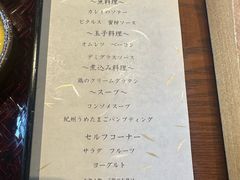 ～魚料理～
カレイのソテー
ピクルス 香味ソース
～玉子料理～
オムレツ ベーコン
デミグラスソース
～煮込み料理～
鶏のクリームグラタン
～スープ～
コンソメスープ
紀州うめたまごパンプディング
セルフコーナー
サラダ フルーツ
ヨーグルト